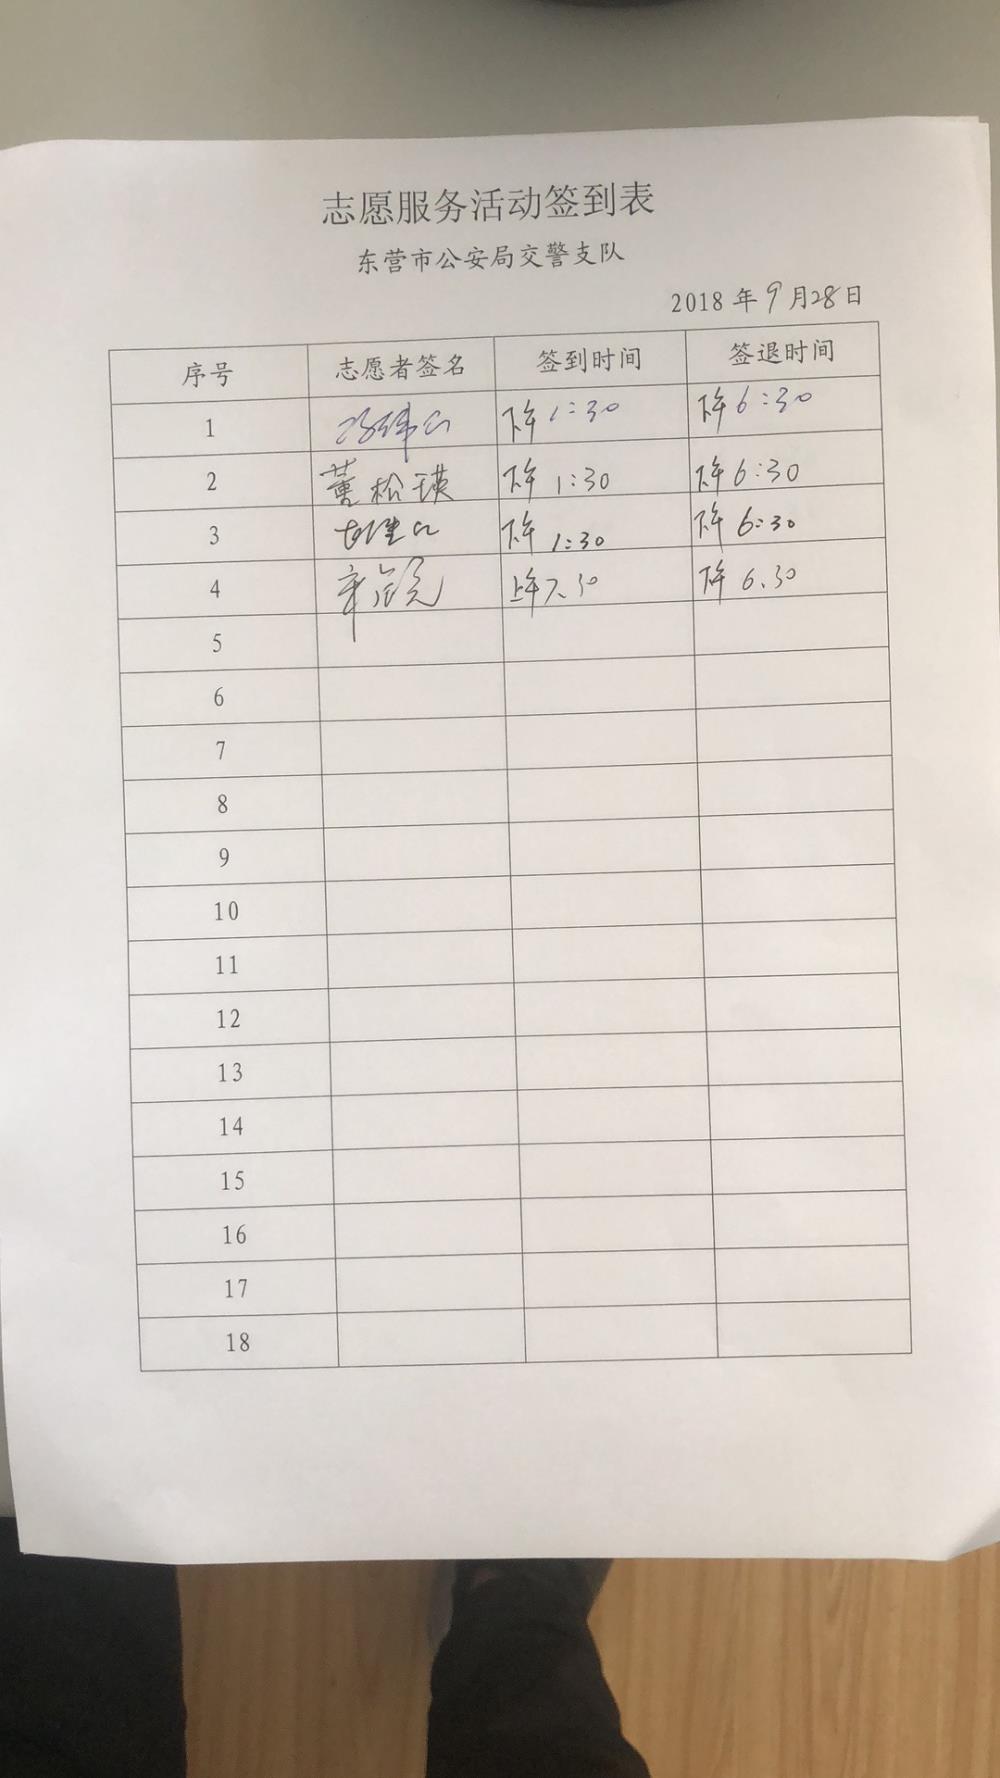 志愿服务活动签到表
东营市公安局交警支队
2018 年 9 月 28 日
序号 志愿者签名 签到时间 签退时间
1 下午 1:30 下午 6:30
2 董松瑛 下午 1:30 下午 6:30
3 下午 1:30 下午 6:30
4 上午7.30 下午 6.30
5
6
7
8
9
10
11
12
13
14
15
16
17
18